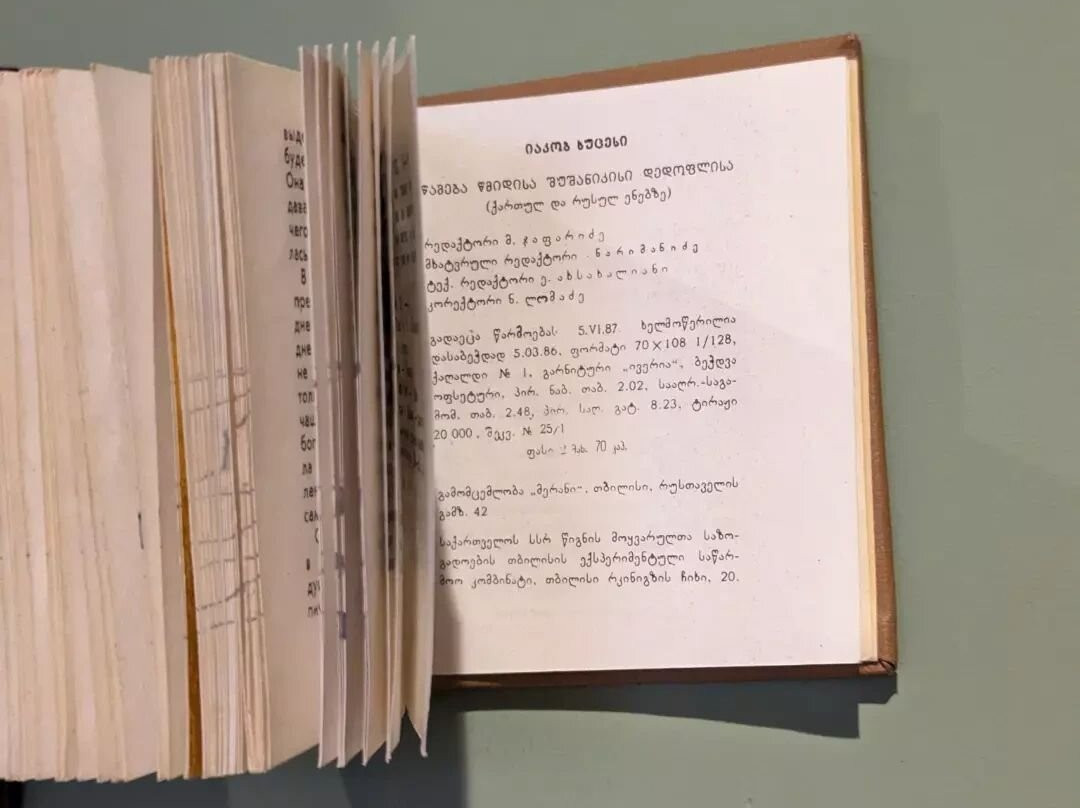 выд
буде
Она
дава
чего
лась
В
пре
дне
дне
не
тол
чащ
бог
ла
лан
сал
С
в
ду
пи
იაკობ ხუცესი
წამება წმიდისა შუშანიკისი დედოფლისა
(ქართულ და რუსულ ენებზე)
რედაქტორი მ. ჯაფარიძე
მხატვრული რედაქტორი ნარიმანიძე
ტექ. რედაქტორი ე. ახსახალიანი
კორექტორი ნ. ლომაძე
გადაეცა წარმოებას 5.VI.87. ხელმოწერილია
დასაბეჭდად 5.03.86, ფორმატი 70×108 1/128,
ქაღალდი № 1, გარნიტური „ივერია“, ბეჭდვა
ოფსეტური, პირ. ნაბ. თაბ. 2.02, სააღრ.-საგა-
მომ. თაბ. 2.48, პირ. საღ. გატ. 8.23, ტირაჟი
20 000, შეკვ. № 25/1
ფასი მან. 70 კაპ.
გამომცემლობა „მერანი“, თბილისი, რუსთაველის
გამზ. 42
საქართველოს სსრ წიგნის მოყვარულთა საზო-
გადოების თბილისის ექსპერიმენტული საწარ-
მოო კომბინატი, თბილისი რკინიგზის ჩიხი, 20.